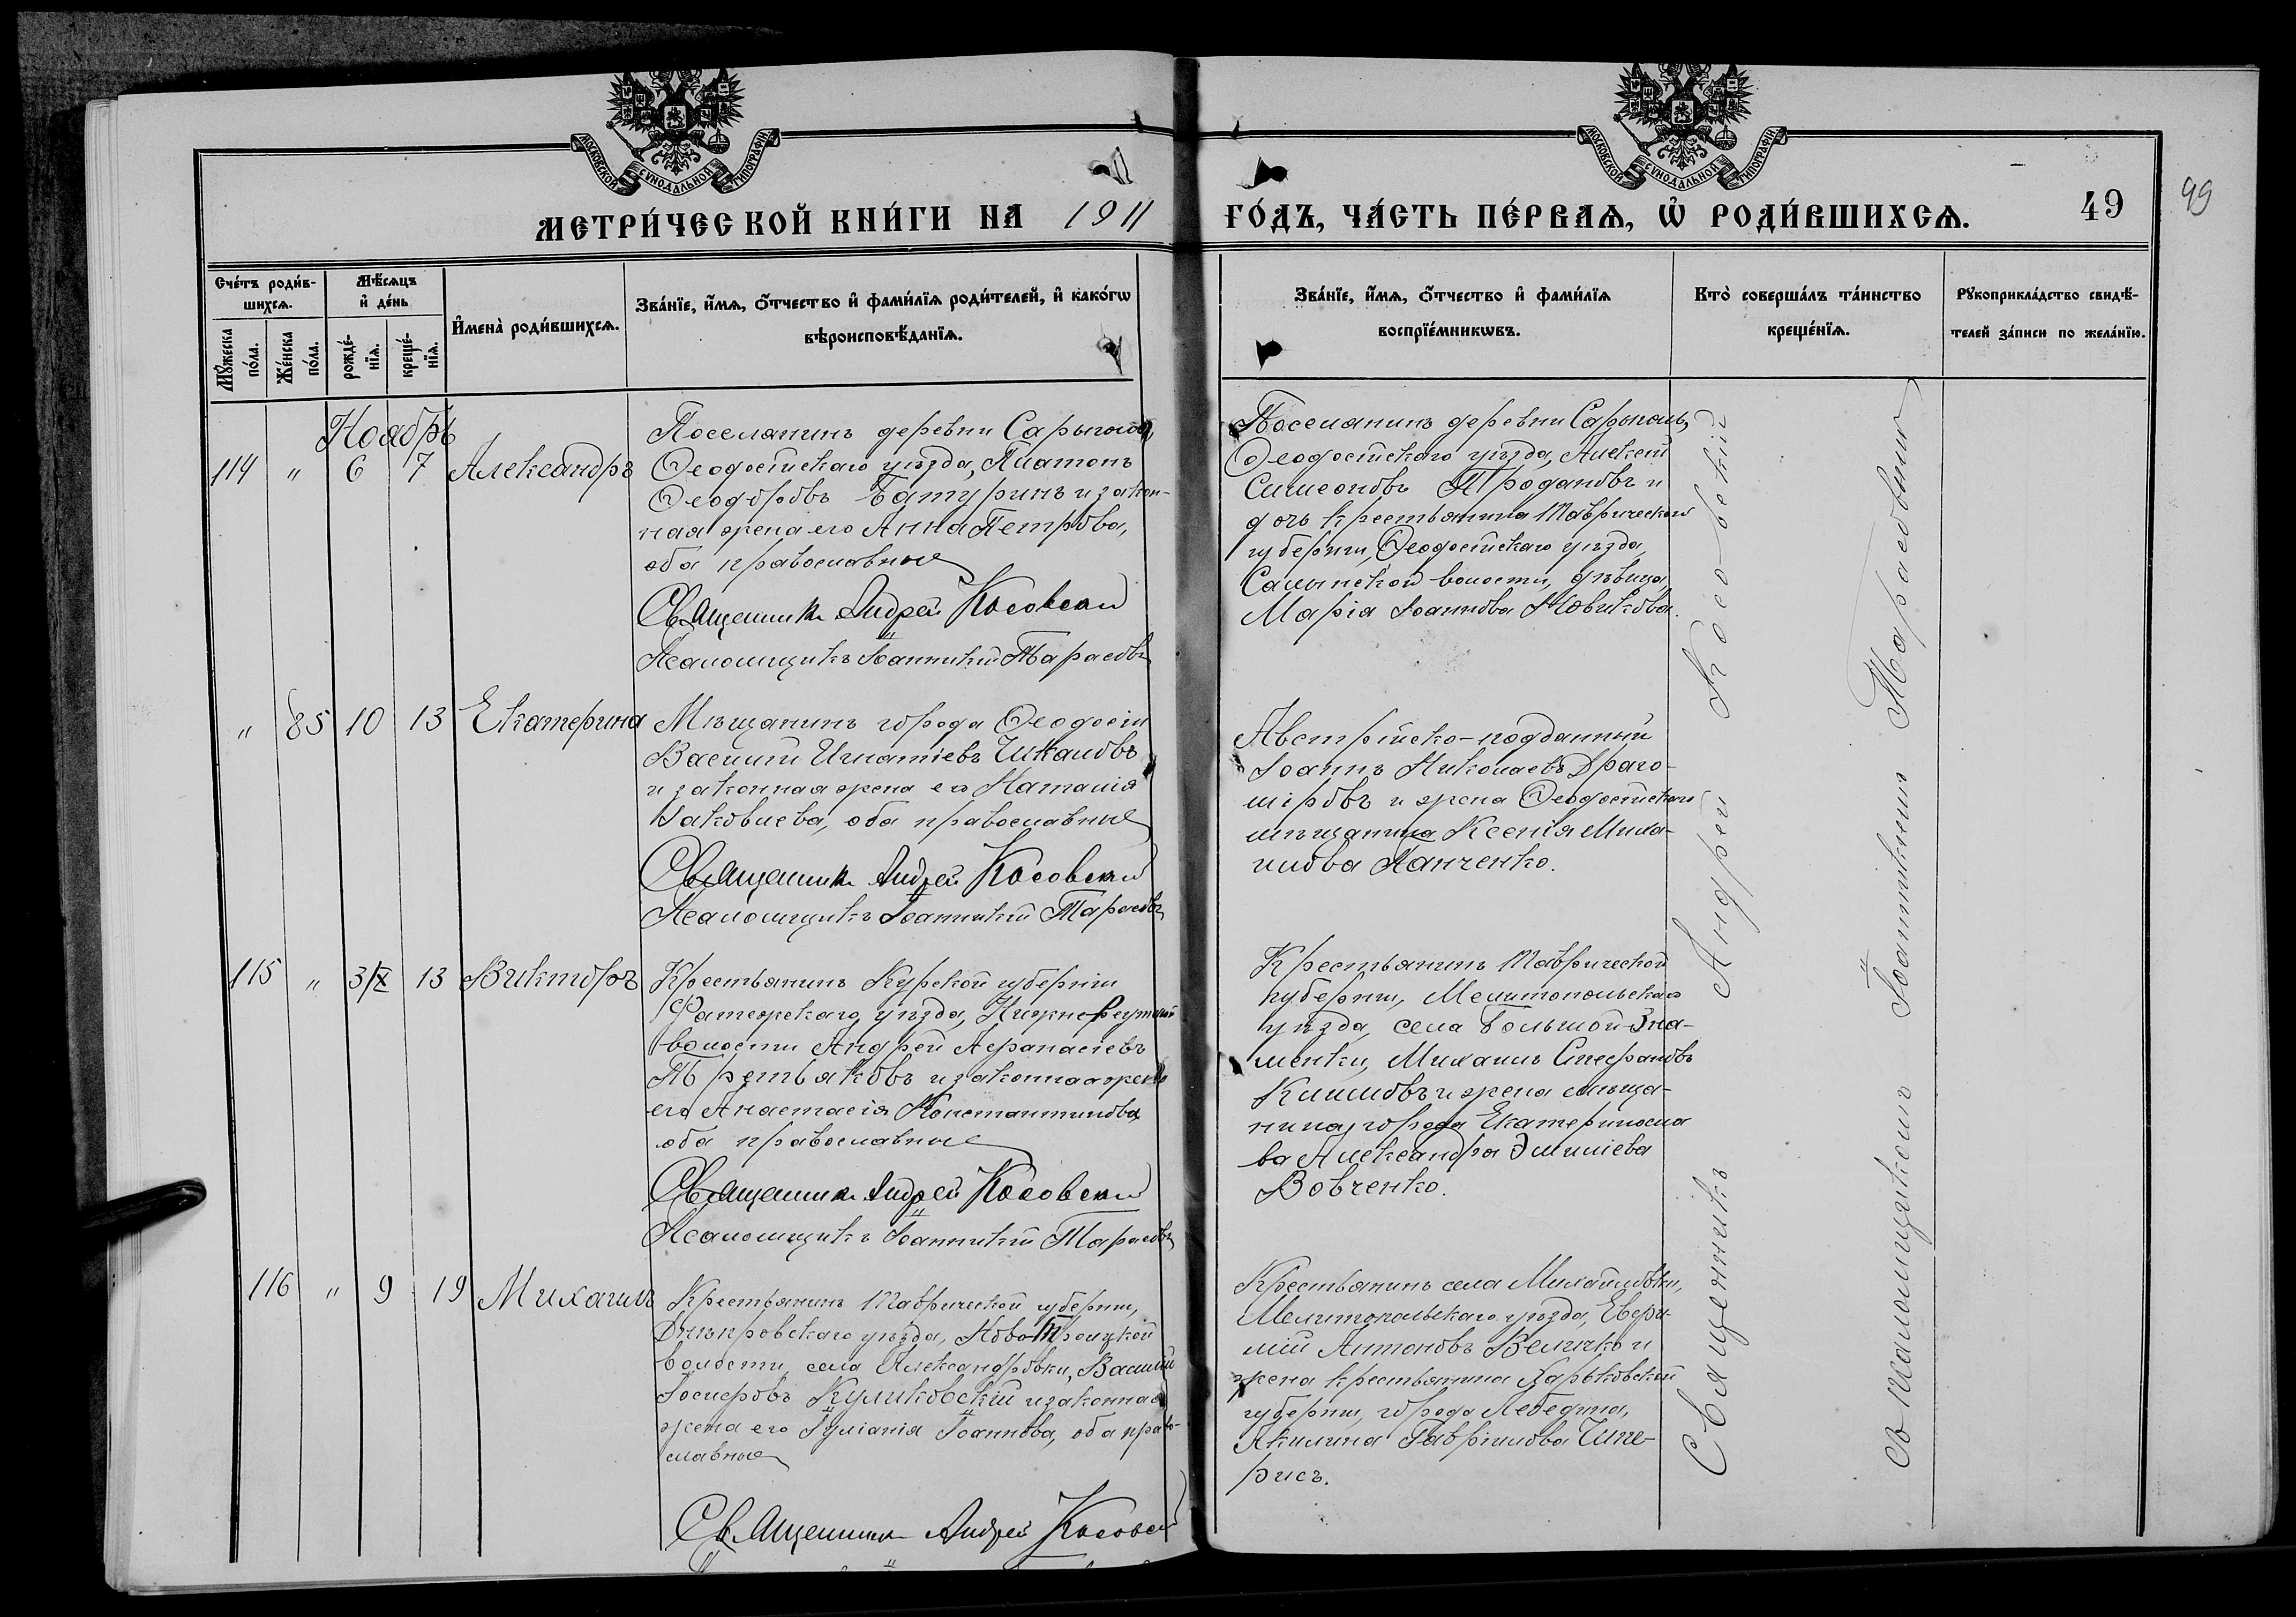 МОСКОВСКОЙ СѴНОДАЛЬНОЙ ТИПОГРАФІИ
МОСКОВСКОЙ СѴНОДАЛЬНОЙ ТИПОГРАФІИ
МЕТРИ́ЧЕСКОЙ КНИ́ГИ НА 1911
ГО́ДЪ, ЧА́СТЬ ПЕ́РВАѦ, Ѡ РОДИ́ВШИХСѦ. 49
49
Сче́тъ роди́в-
шихсѧ.
Мꙋ́жеска по́ла.
Же́нска по́ла.
Мѣ́сѧцъ
и҆ де́нь
рожде́-
нїѧ.
креще́-
нїѧ.
И҆мена̀ роди́вшихсѧ.
Зва́нїе, и҆́мѧ, ѻ҆́тчество и҆ фами́лїѧ роди́телей, и҆ како́гѡ
вѣроисповѣ́данїѧ.
Зва́нїе, и҆́мѧ, ѻ҆́тчество и҆ фами́лїѧ
воспрїе́мникѡвъ.
Кто̀ соверша́лъ та́инство
креще́нїѧ.
Рꙋкоприкла́дство свидѣ́-
телей за́писи по жела́нїю.
Ноябрь
114 " 6 7 Александръ
Поселянинъ деревни Сарыголь,
Ѳеодосійскаго уѣзда, Платонъ
Ѳеодоровъ Батуринъ и закон-
ная жена его Анна Петрова,
оба православные
Священникъ Андрей Косовскій
Псаломщикъ Іоанникій Тарасовъ
Поселянинъ деревни Сарыголь,
Ѳеодосійскаго уѣзда, Алексій
Симеоновъ Продановъ и
дочь крестьянина Таврической
губерніи, Ѳеодосійскаго уѣзда,
волости, дѣвица
Марія Іоаннова Новикова.
" 85 10 13 Екатерина
Мѣщанинъ города Ѳеодосіи
Василій Игнатіевъ Чикаловъ
и законная жена его Наталія
Іаковлева, оба православные
Священникъ Андрей Косовскій
Псаломщикъ Іоанникій Тарасовъ
Австрійско-подданный
Іоаннъ Николаевъ Драго-
міровъ и жена Ѳеодосійскаго
мѣщанина Ксенія Миха-
илова Панченко.
115 " 3/X 13 Викторъ
Крестьянинъ Курской губерніи
Фатежскаго уѣзда, Нижнереутской
волости Андрей Аѳанасіевъ
Третьяковъ и законная жена
его Анастасія Константинова,
оба православные
Священникъ Андрей Косовскій
Псаломщикъ Іоанникій Тарасовъ
Крестьянинъ Таврической
губерніи, Мелитопольскаго
уѣзда, села Большой-Зна-
менки, Михаилъ Стефановъ
Климовъ и жена мѣща-
нина города Екатериносла
ва Александра Эмиліева
Вовченко.
116 " 9 19 Михаилъ
Крестьянинъ Таврической губерніи,
Днѣпровскаго уѣзда, Ново-Троицкой
волости, села Александровки, Василій
Іосифовъ Куликовскій и законная
жена его Іуліанія Іоаннова, оба право-
славные
Священникъ Андрей Косовскій
Крестьянинъ села Михайловки,
Мелитопольскаго уѣзда, Евфи-
мій Антоновъ Величко и
жена крестьянина Харьковской
губерніи, города Лебедина,
Акилина Гавріилова
Священникъ Андрей Косовскій
съ псаломщикомъ Іоанникіемъ Тарасовымъ